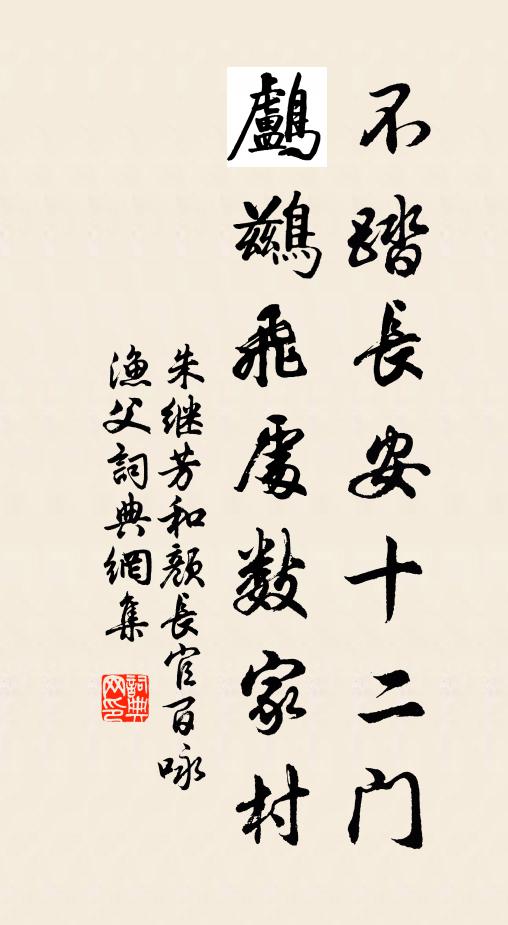 不踏長安十二门
鸕鷀飛處數家村
朱继芳和顏長官百咏
漁父詞典網集
詞典网印